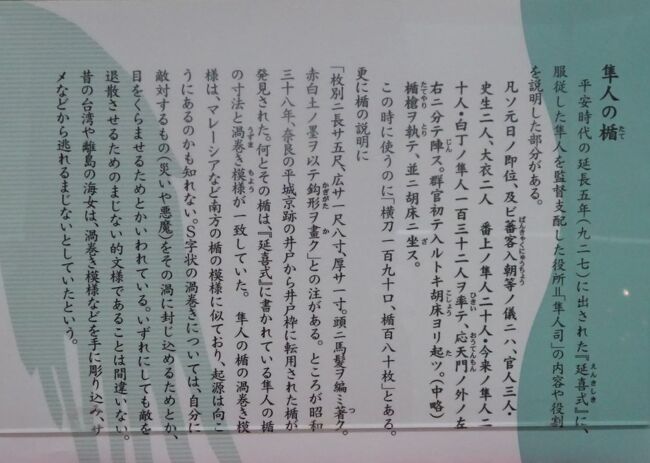 隼人の楯
平安時代の延長五年(九二七)に出された『延喜式』に、
服従した隼人を監督支配した役所=「隼人司」の内容や役割
を説明した部分がある。
凡ソ元日ノ即位、及ビ蕃客入朝等ノ儀ニハ、官人三人・
史生二人、大衣二人 番上ノ隼人二十人・今来ノ隼人二
十人・白丁ノ隼人一百三十二人ヲ率テ、応天門ノ外ノ左
右ニ分テ陣ス。群官初テ入ルトキ胡床ヨリ起ツ。(中略)
楯槍ヲ執テ、並ニ胡床ニ坐ス。
この時に使うのに「横刀一百九十口、楯百八十枚」とある。
更に楯の説明に
「枚別ニ長サ五尺、広サ一尺八寸、厚サ一寸。頭ニ馬髪ヲ編ミ著ク。
赤白土ノ墨ヲ以テ鈎形ヲ畫ク」との注がある。ところが昭和
三十八年、奈良の平城京跡の井戸から井戸枠に転用された楯が
発見された。何とその楯は『延喜式』に書かれている隼人の楯
の寸法と渦巻き模様が一致していた。 隼人の楯の渦巻き模
様は、マレーシアなど南方の楯の模様に似ており、起源は向こ
うにあるのかも知れない。S字状の渦巻きについては、自分に
敵対するもの(災いや悪魔)をその渦に封じ込めるためとか、
目をくらませるためとかいわれている。いずれにしても敵を
退散させるためのまじない的文様であることは間違いない。
昔の台湾や離島の海女は、渦巻き模様などを手に彫り込み、サ
メなどから逃れるまじないとしていたという。